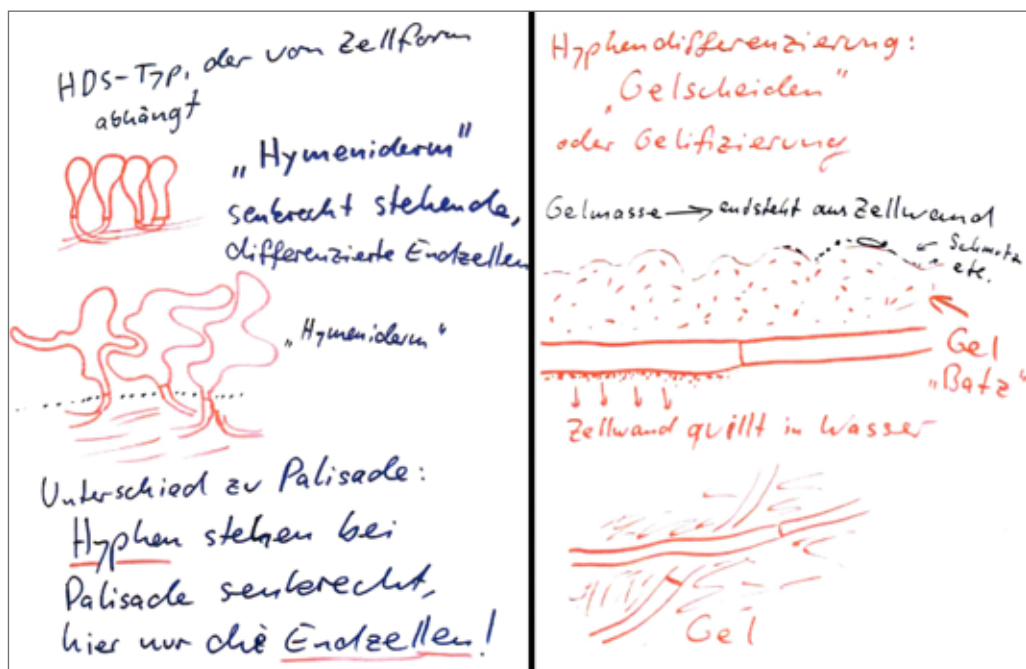 HDS-Typ, der von Zellform
abhängt
„Hymeniderm"
senkrecht stehende,
differenzierte Endzellen
„Hymeniderm"
Unterschied zu Palisade:
Hyphen stehen bei
Palisade senkrecht,
hier nur die Endzellen!
Hyphendifferenzierung:
„Gelscheiden"
oder Gelifizierung
Gelmasse → entsteht aus Zellwand
Schmutz
etc.
Gel
„Batz"
Zellwand quillt in Wasser
Gel